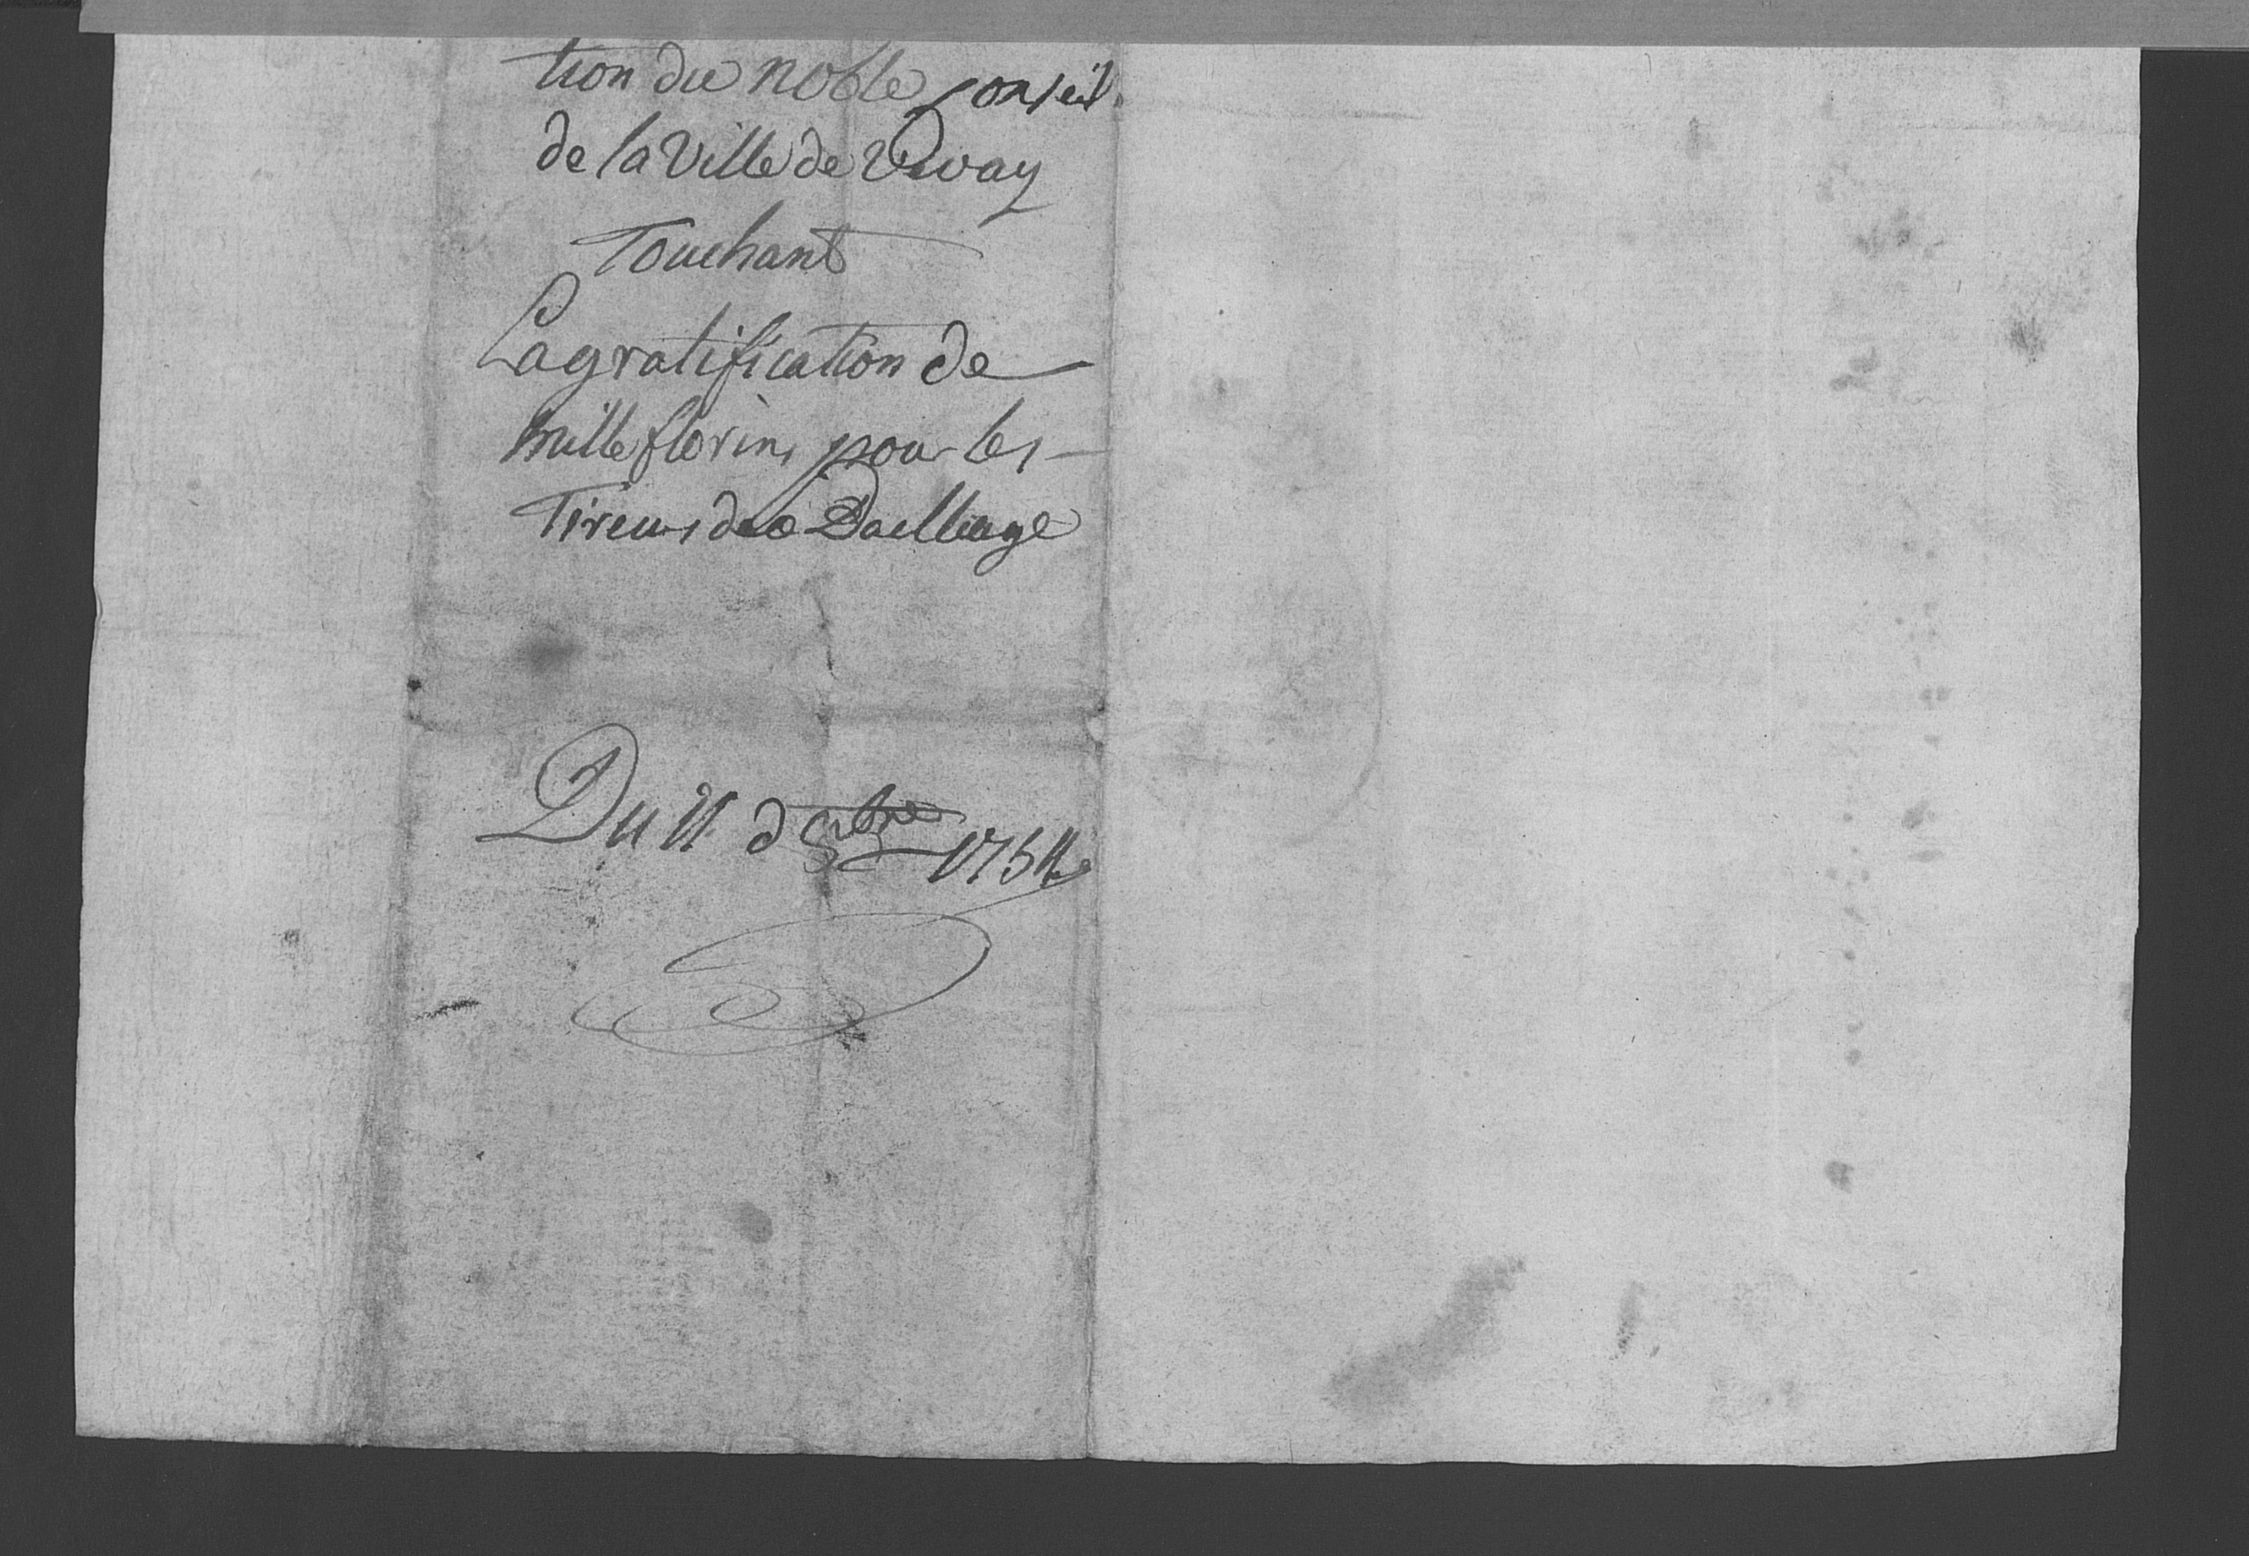 tion du noble Conseil
de la Ville de Vevay
Touchant
La gratification de
mille florins pour les
Tireurs de Bailliage
Du 11 d 1754